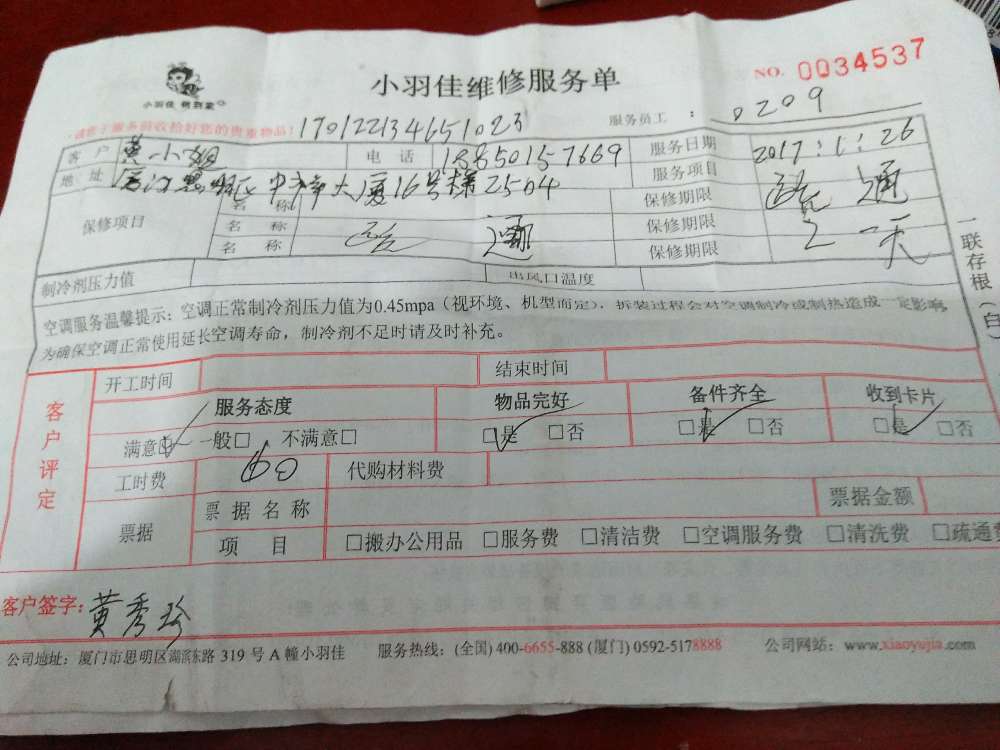 小羽佳维修服务单
NO. 0034537
小羽佳 倒到家
·请您于服务前收拾好您的贵重物品! 17012213465 1023 服务员工 : 0209
客户 黄小姐 电话 18850157669 服务日期 2017.1.26
地址 厦门思明区 大厦16号楼2504 服务项目 疏通
保修项目 名称 保修期限
名称 疏通 保修期限 一天
名称 保修期限
制冷剂压力值 出风口温度
空调服务温馨提示: 空调正常制冷剂压力值为0.45mpa (视环境、机型而定), 拆装过程会对空调制冷或制热造成一定影响,
为确保空调正常使用延长空调寿命, 制冷剂不足时请及时补充。
一联存根 (白)
客户评定
开工时间 结束时间
服务态度 物品完好 备件齐全 收到卡片
满意☑ 一般□ 不满意□ ☑是 □否 ☑是 □否 ☑是 □否
工时费 60 代购材料费
票据 票据名称 票据金额
项目 □搬办公用品 □服务费 □清洁费 □空调服务费 □清洗费 □疏通费
客户签字: 黄秀珍
公司地址: 厦门市思明区湖滨东路 319 号 A 幢小羽佳 服务热线: (全国) 400-6655-888 (厦门) 0592-5178888 公司网站: www.xiaoyujia.com